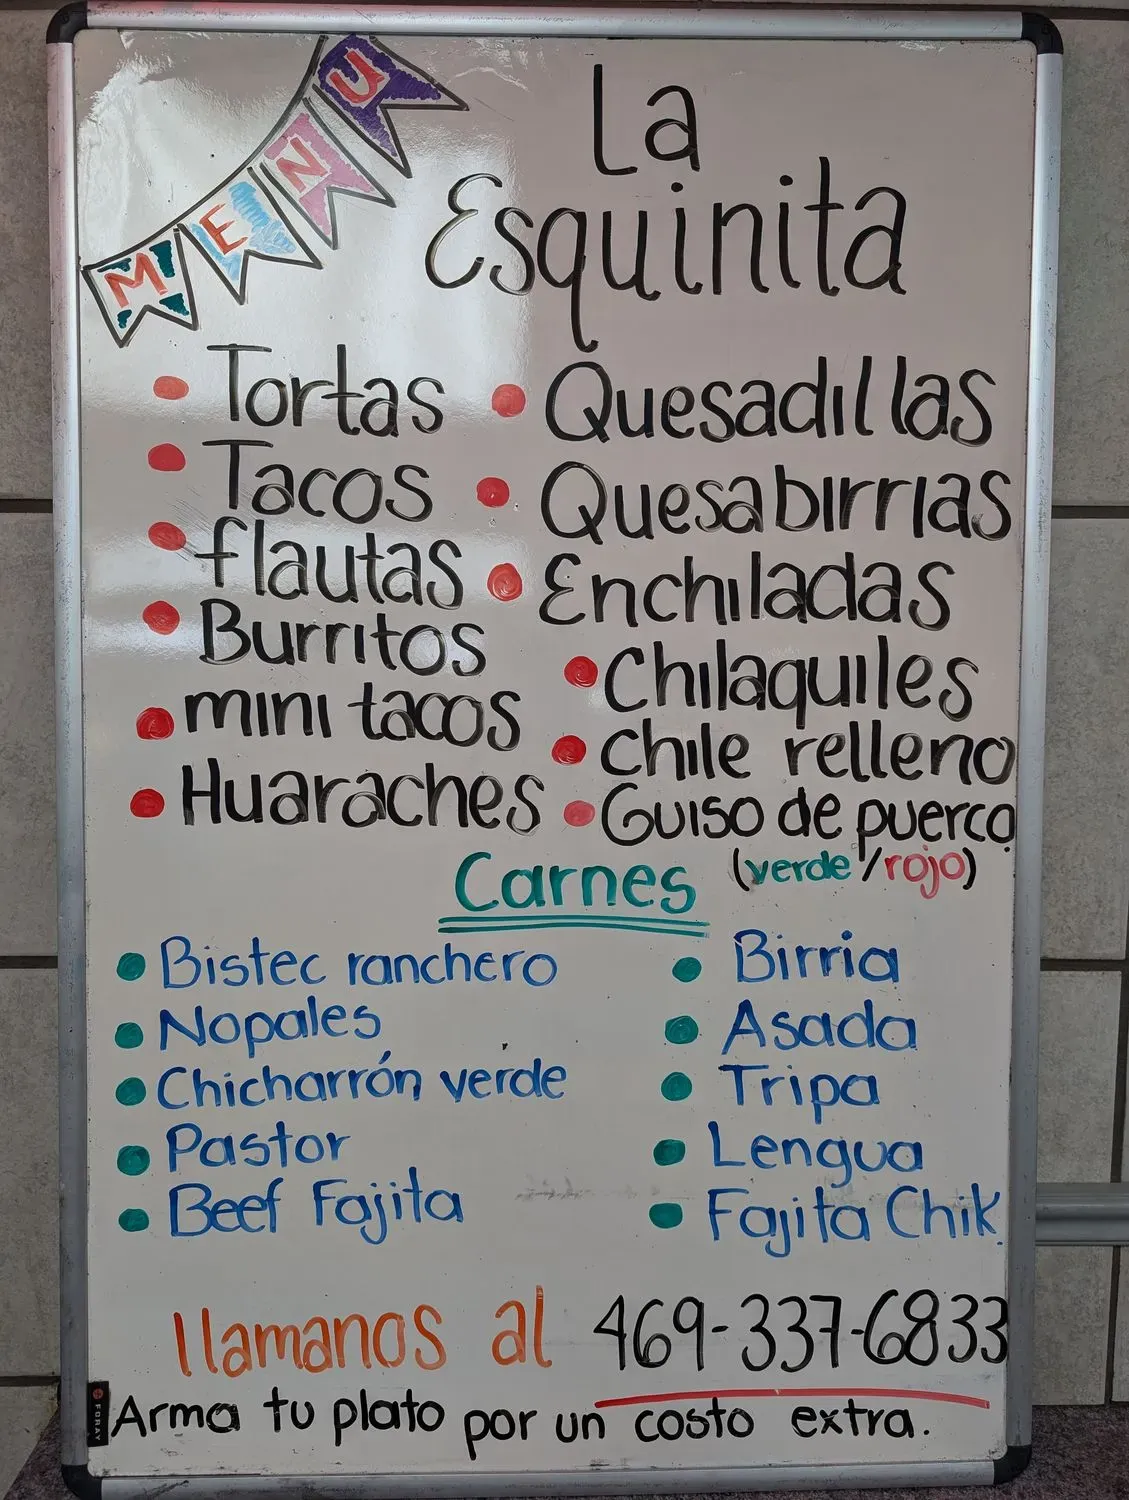 MENU
La
Esquinita
Tortas
Tacos
flautas
Burritos
mini tacos
Huaraches
Quesadillas
Quesabirrias
Enchiladas
Chilaquiles
chile relleno
Guiso de puerco
(verde/rojo)
Carnes
Bistec ranchero
Nopales
Chicharrón verde
Pastor
Beef Fajita
Birria
Asada
Tripa
Lengua
Fajita Chik.
llamanos al 469-337-6833
Arma tu plato por un costo extra.
FORAY